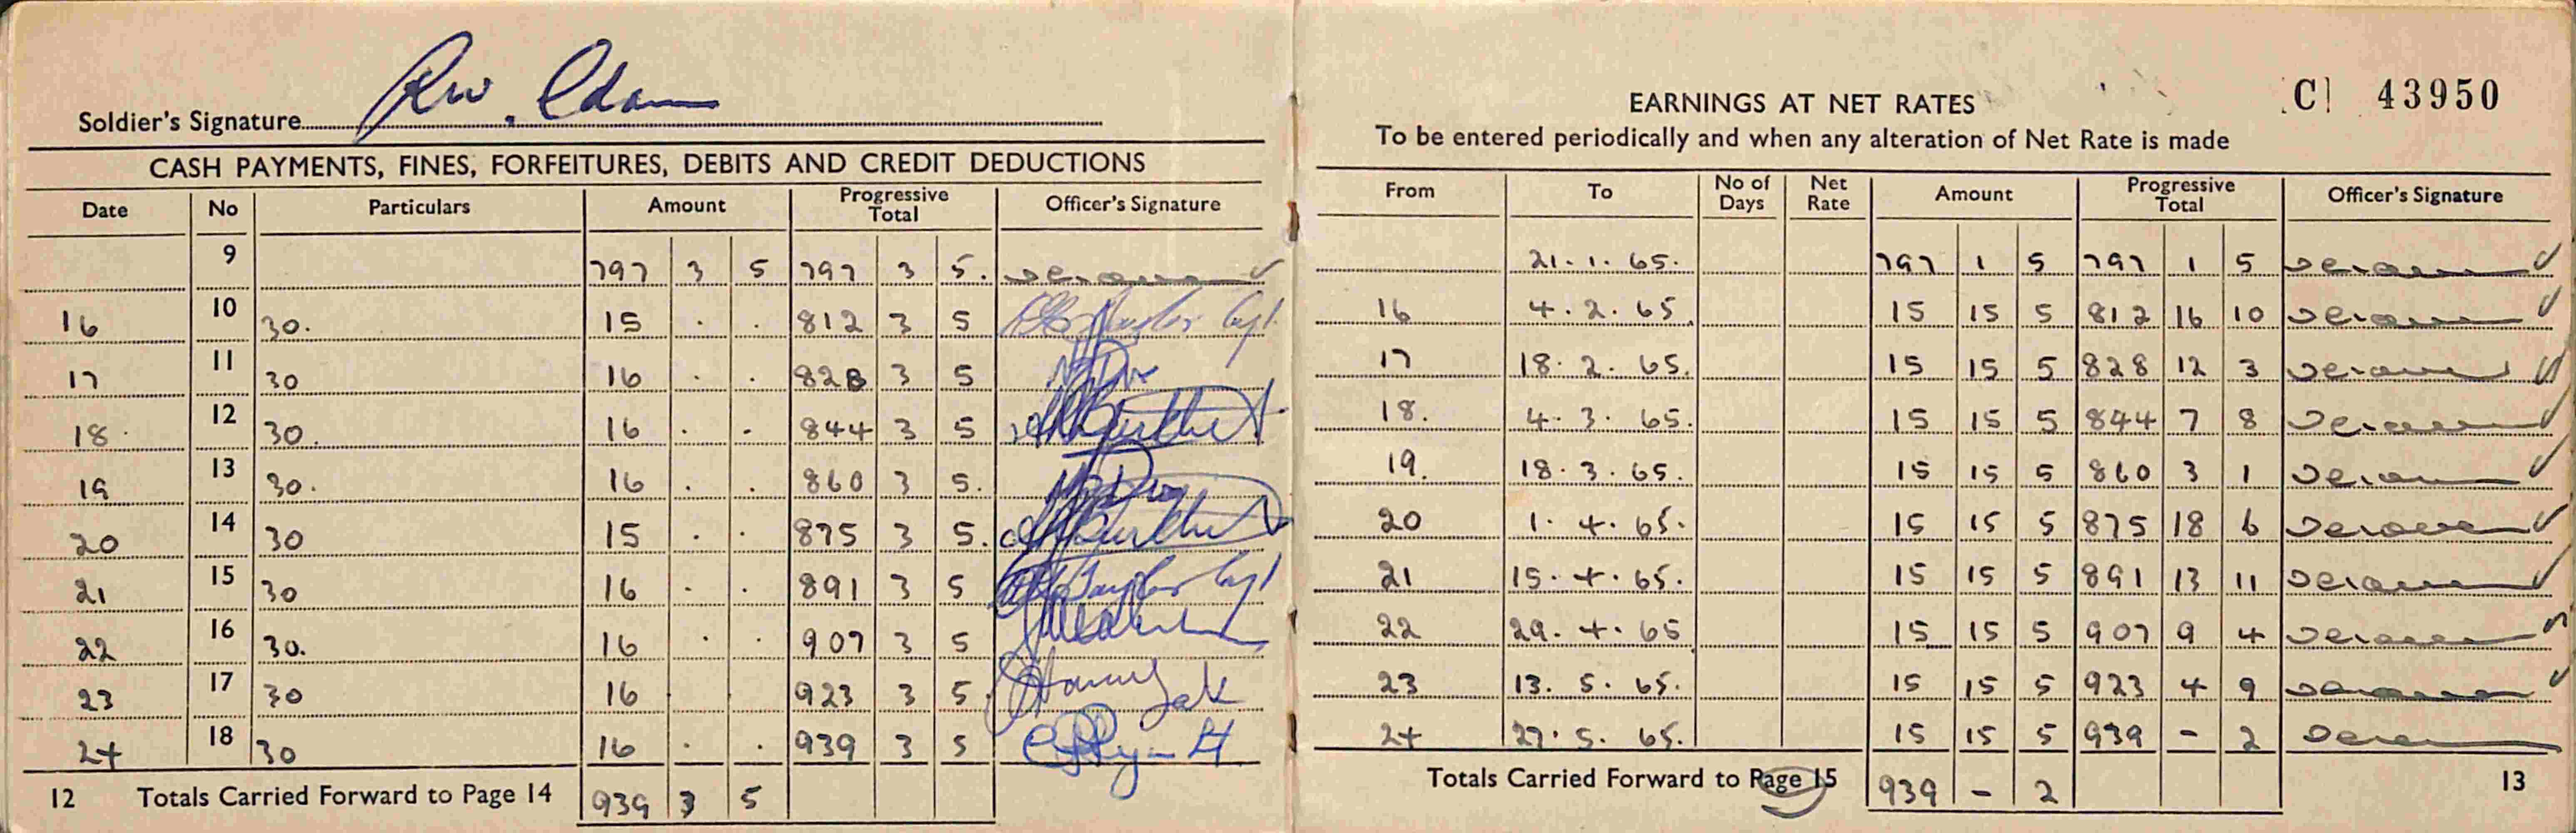 Soldier's Signature
CASH PAYMENTS, FINES, FORFEITURES, DEBITS AND CREDIT DEDUCTIONS
Date No Particulars Amount Progressive Total Officer's Signature
9 797 3 5 797 3 5.
16 10 30. 15 . . 812 3 5
17 11 30 16 . . 828 3 5
18. 12 30. 16 . . 844 3 5
19 13 30. 16 . . 860 3 5.
20 14 30 15 . . 875 3 5.
21 15 30 16 . . 891 3 5
22 16 30. 16 . . 907 3 5
23 17 30 16 . . 923 3 5
24 18 30 16 . . 939 3 5
12 Totals Carried Forward to Page 14 939 3 5
C 43950
EARNINGS AT NET RATES
To be entered periodically and when any alteration of Net Rate is made
From To No of Days Net Rate Amount Progressive Total Officer's Signature
21.1.65. 797 1 5 797 1 5
16 4.2.65. 15 15 5 812 16 10
17 18.2.65. 15 15 5 828 12 3
18. 4.3.65. 15 15 5 844 7 8
19. 18.3.65. 15 15 5 860 3 1
20 1.4.65. 15 15 5 875 18 6
21 15.4.65. 15 15 5 891 13 11
22 29.4.65 15 15 5 907 9 4
23 13.5.65. 15 15 5 923 4 9
24 27.5.65. 15 15 5 939 - 2
Totals Carried Forward to Page 15 939 - 2 13